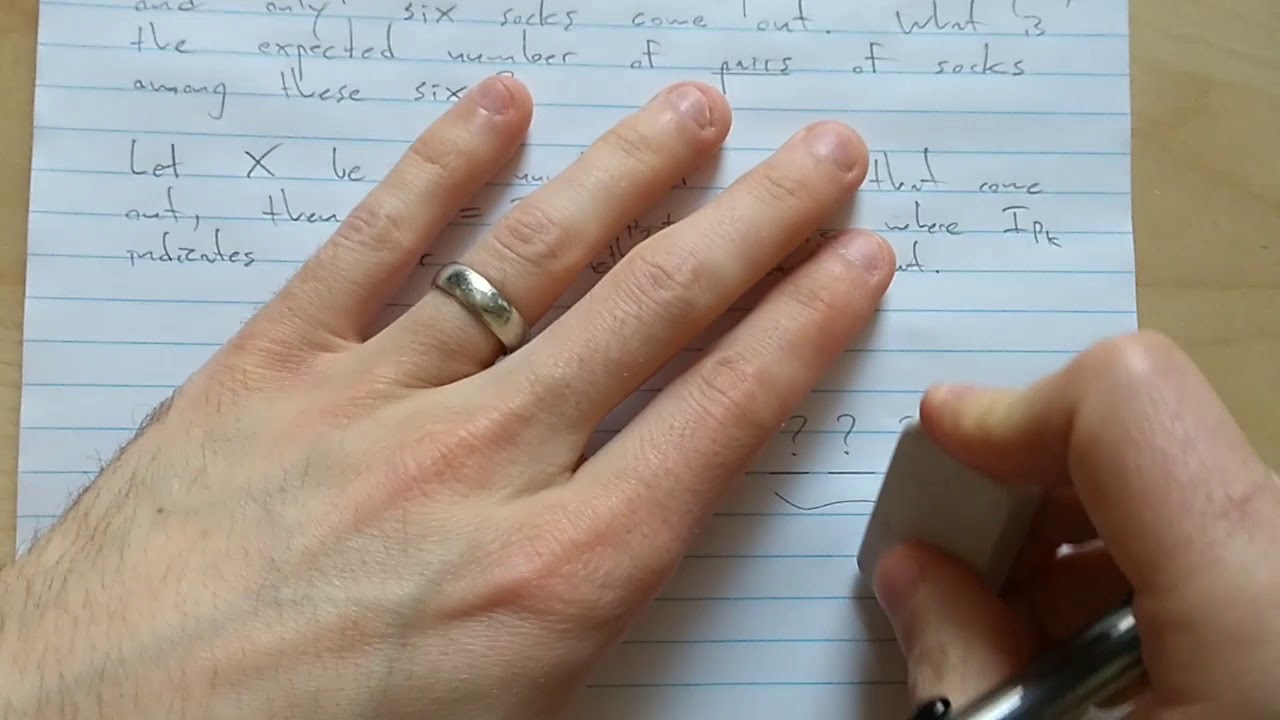 and only six socks come out. What is
the expected number of pairs of socks
among these six
Let X be that come
out, then = where I_{Pk}
indicates out.
? ?